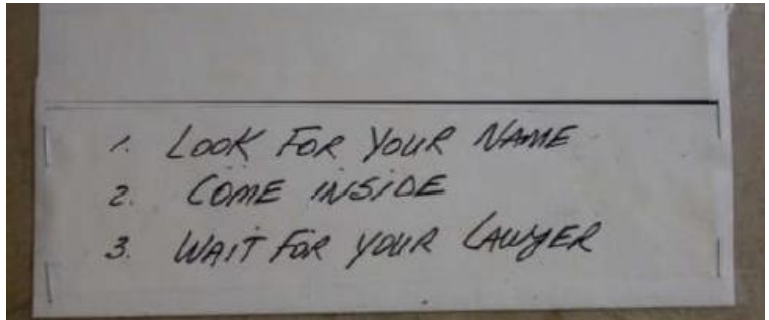 1. LOOK FOR YOUR NAME
2. COME INSIDE
3. WAIT FOR YOUR LAWYER